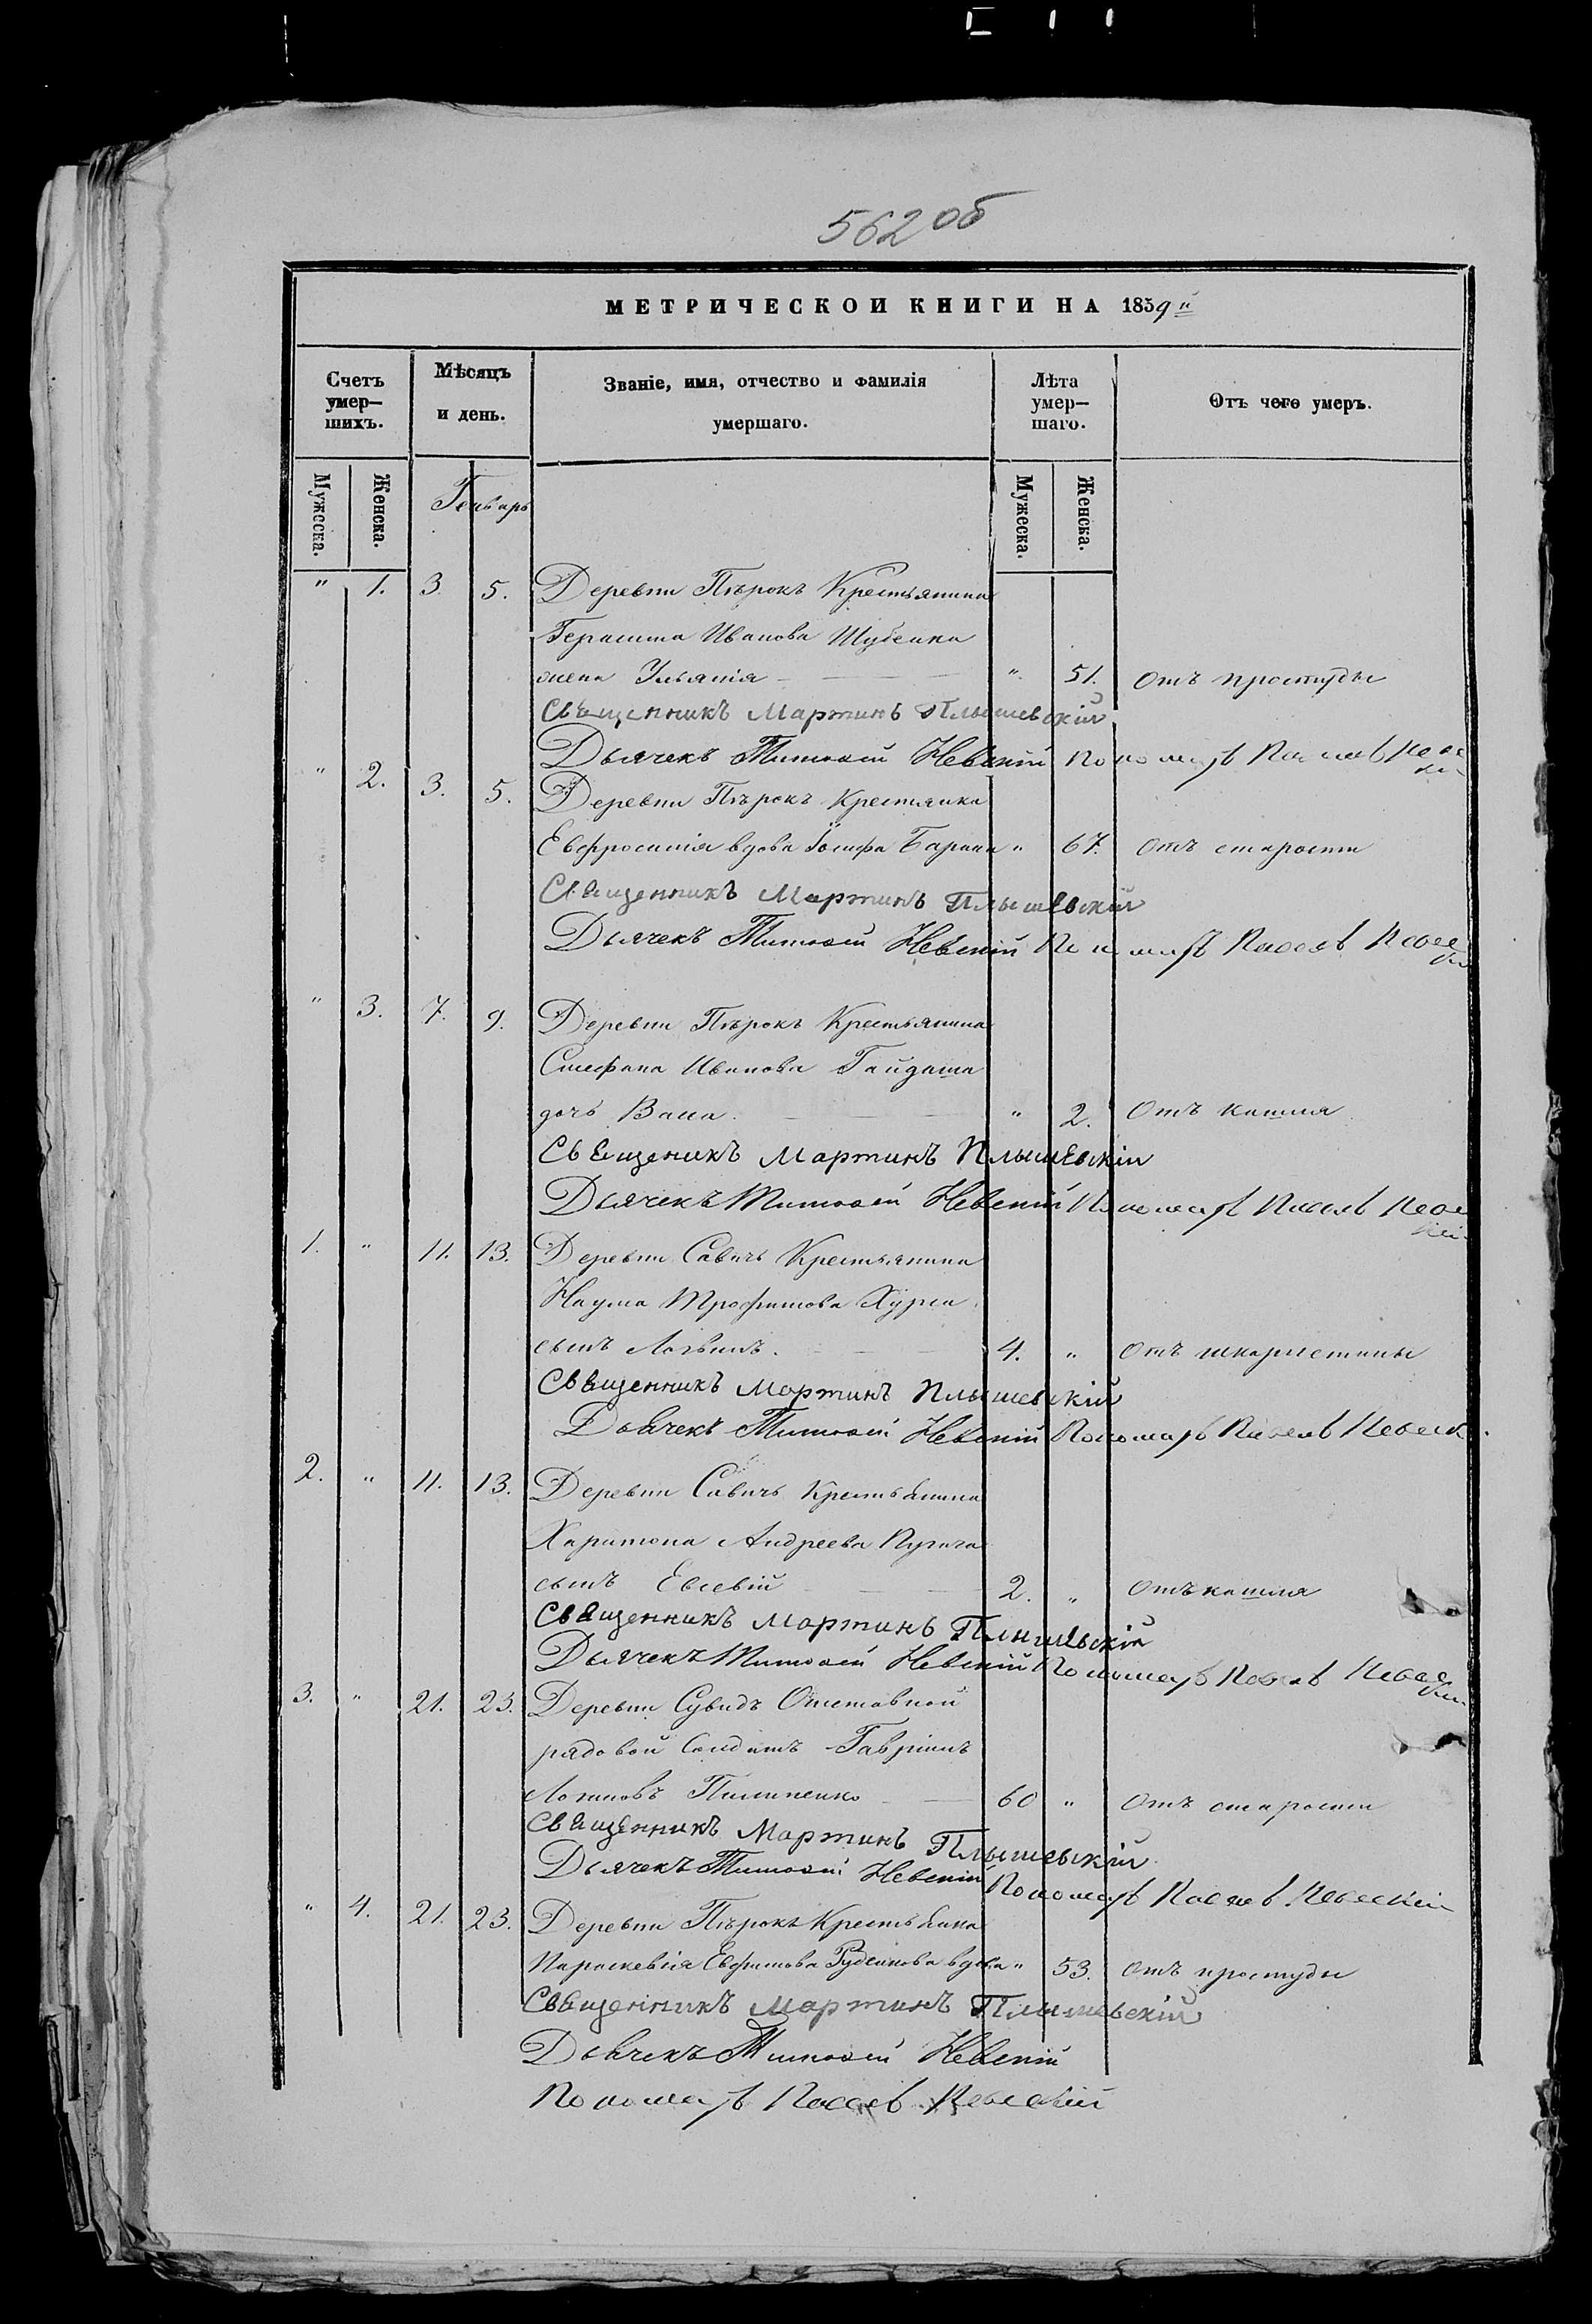 562 об
МЕТРИЧЕСКОИ КНИГИ НА 1859й
Счетъ умер–шихъ.
Мѣсяцъ и день.
Званіе, имя, отчество и фамилія умершаго.
Лѣта умер–шаго.
Отъ чего умеръ.
Мужеска. Женска. Генварь Мужеска. Женска.
" 1. 3. 5. Деревни Пѣрокъ Крестьянина
Герасима Иванова Шубенка
жена Ульянія " 51. Отъ простуды
Священникъ Мартинъ Плышевскій
Дьячекъ Тимофей Невскій Пономарь Павелъ
" 2. 3. 5. Деревни Пѣрокъ Крестьянка
Евфросинія вдова Іосифа Барана " 67. Отъ старости
Священникъ Мартинъ Плышевскій
Дьячекъ Тимофей Невскій Пономарь Павелъ
" 3. 7. 9. Деревни Пѣрокъ Крестьянина
Стефана Иванова Гайдаша
дочь Васса " 2. Отъ кашля
Священикъ Мартинъ Плышевскій
Дьячекъ Тимофей Невскій Пономарь Павелъ
1. " 11. 13. Деревни Савичъ Крестьянина
Наума Трофимова
сынъ Логвинъ. 4. " Отъ шкарлетины
Священникъ Мартинъ Плышевскій
Дьячекъ Тимофей Невскій Пономарь Павелъ
2. " 11. 13. Деревни Савичъ Крестьянина
Харитона Андреева
сынъ Евсевій 2. " Отъ кашля
Священникъ Мартинъ Плышевскій
Дьячекъ Тимофей Невскій Пономарь Павелъ
3. " 21. 23. Деревни Сувидъ Отставной
рядовой Солдатъ Гавріилъ
Логиновъ Пилипенко 60 " Отъ старости
Священникъ Мартинъ Плышевскій
Дьячекъ Тимофей Невскій Пономарь Павелъ Невскій
" 4. 21. 23. Деревни Пѣрокъ
Параскевія Евфимова Руденкова вдова " 53. Отъ простуды
Священникъ Мартинъ Плышевскій
Дьячекъ Тимофей Невскій
Пономарь Павелъ Невскій